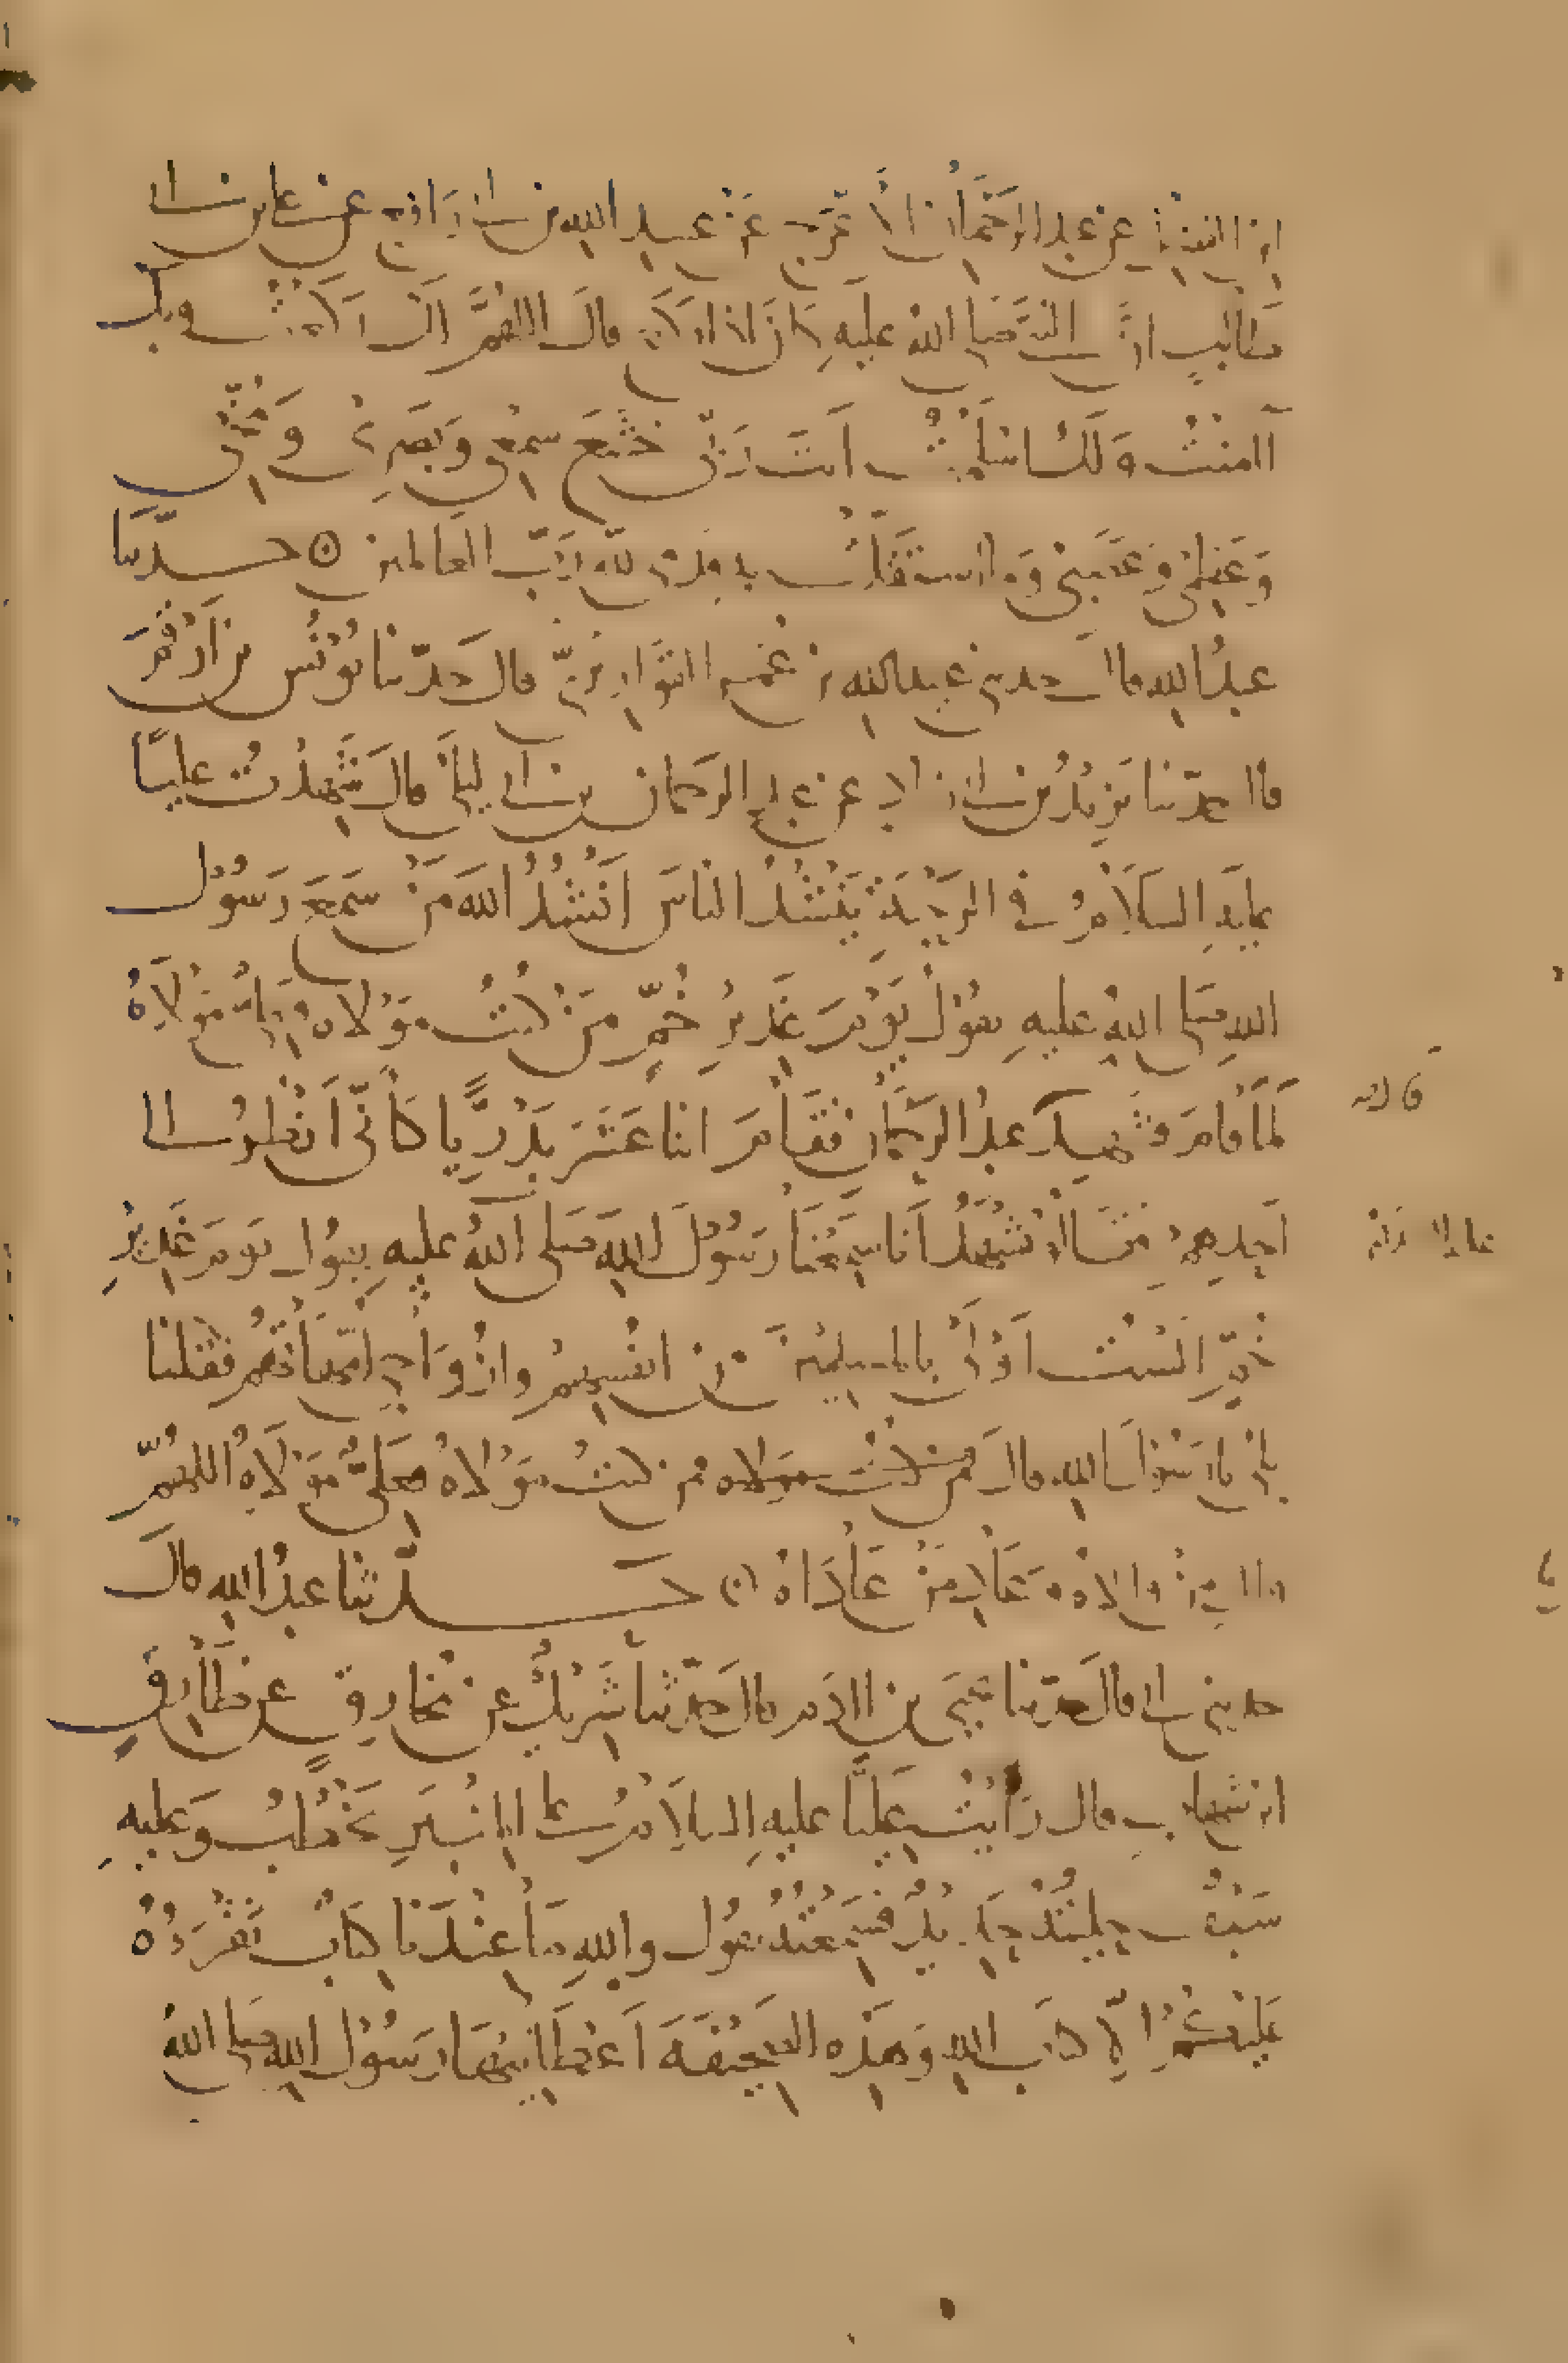 ابن الفضل عن عبد الرحمان الأعرج عن عبيد الله بن ابى رافع عن على بن ابى
طالب ان النبى صلى الله عليه كان اذا ركع قال اللهم لك ركعت وبك
آمنت ولك اسلمت انت ربى خشع سمعى وبصرى ومخى
وعظمى وعصبى وما استقلت به قدمى لله رب العالمين ۞ حدثنا
عبد الله قال حدثنى عبيد الله بن عمر القواريرى قال حدثنا يونس بن ارقم
قال حدثنا يزيد بن ابى زياد عن عبد الرحمان بن ابى ليلى قال شهدت عليا
عليه السلام فى الرحبة ينشد الناس انشد الله من سمع رسول
الله صلى الله عليه يقول يوم غدير خم من كنت مولاه فعلى مولاه
لما قام فشهد عبد الرحمان فقام اثنا عشر بدريا كأنى انظر الى
احدهم فقالوا نشهد انا سمعنا رسول الله صلى الله عليه يقول يوم غدير
خم الست اولى بالمسلمين من انفسهم وازواجى امهاتهم فقلنا
بلى يا رسول الله قال فمن كنت مولاه فمن كنت مولاه فعلى مولاه اللهم
وال من والاه وعاد من عاداه ۞ حدثنا عبد الله قال
حدثنى ابى قال حدثنا يحيى بن اادم قال حدثنا شريك عن مخارق عن طارق
ابن شهاب قال رأيت عليا عليه السلام على المنبر يخطب وعليه
سيف حليته حديد فسمعته يقول والله ما عندنا كتاب نقرءه
عليكم الا كتاب الله وهذه الصحيفة اعطانيها رسول الله صلى الله